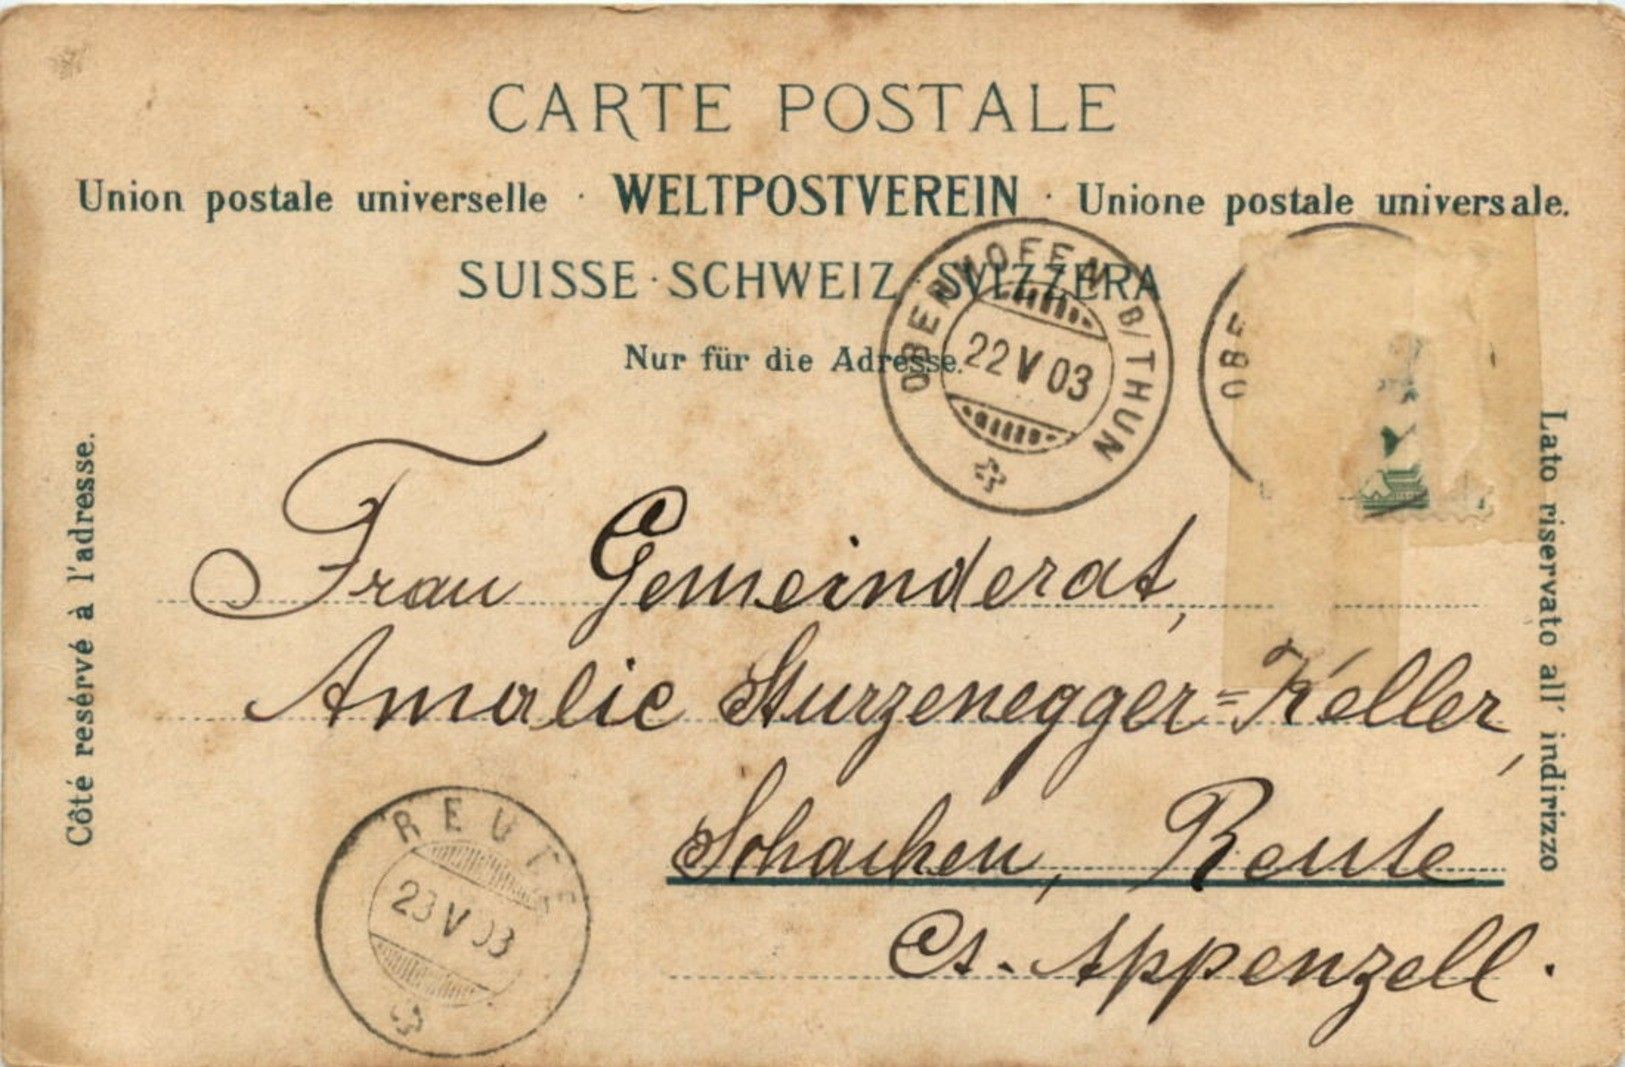 CARTE POSTALE
Union postale universelle · WELTPOSTVEREIN · Unione postale universale.
SUISSE · SCHWEIZ · SVIZZERA
Nur für die Adresse.
OBERHOFEN B/THUN
22 V 03
OBE
Côté resérvé à l'adresse.
Lato riservato all' indirizzo
Frau Gemeinderat,
Amalie Sturzenegger=Keller,
Schachen, Reute
Ct. Appenzell.
REUTE
23 V 03